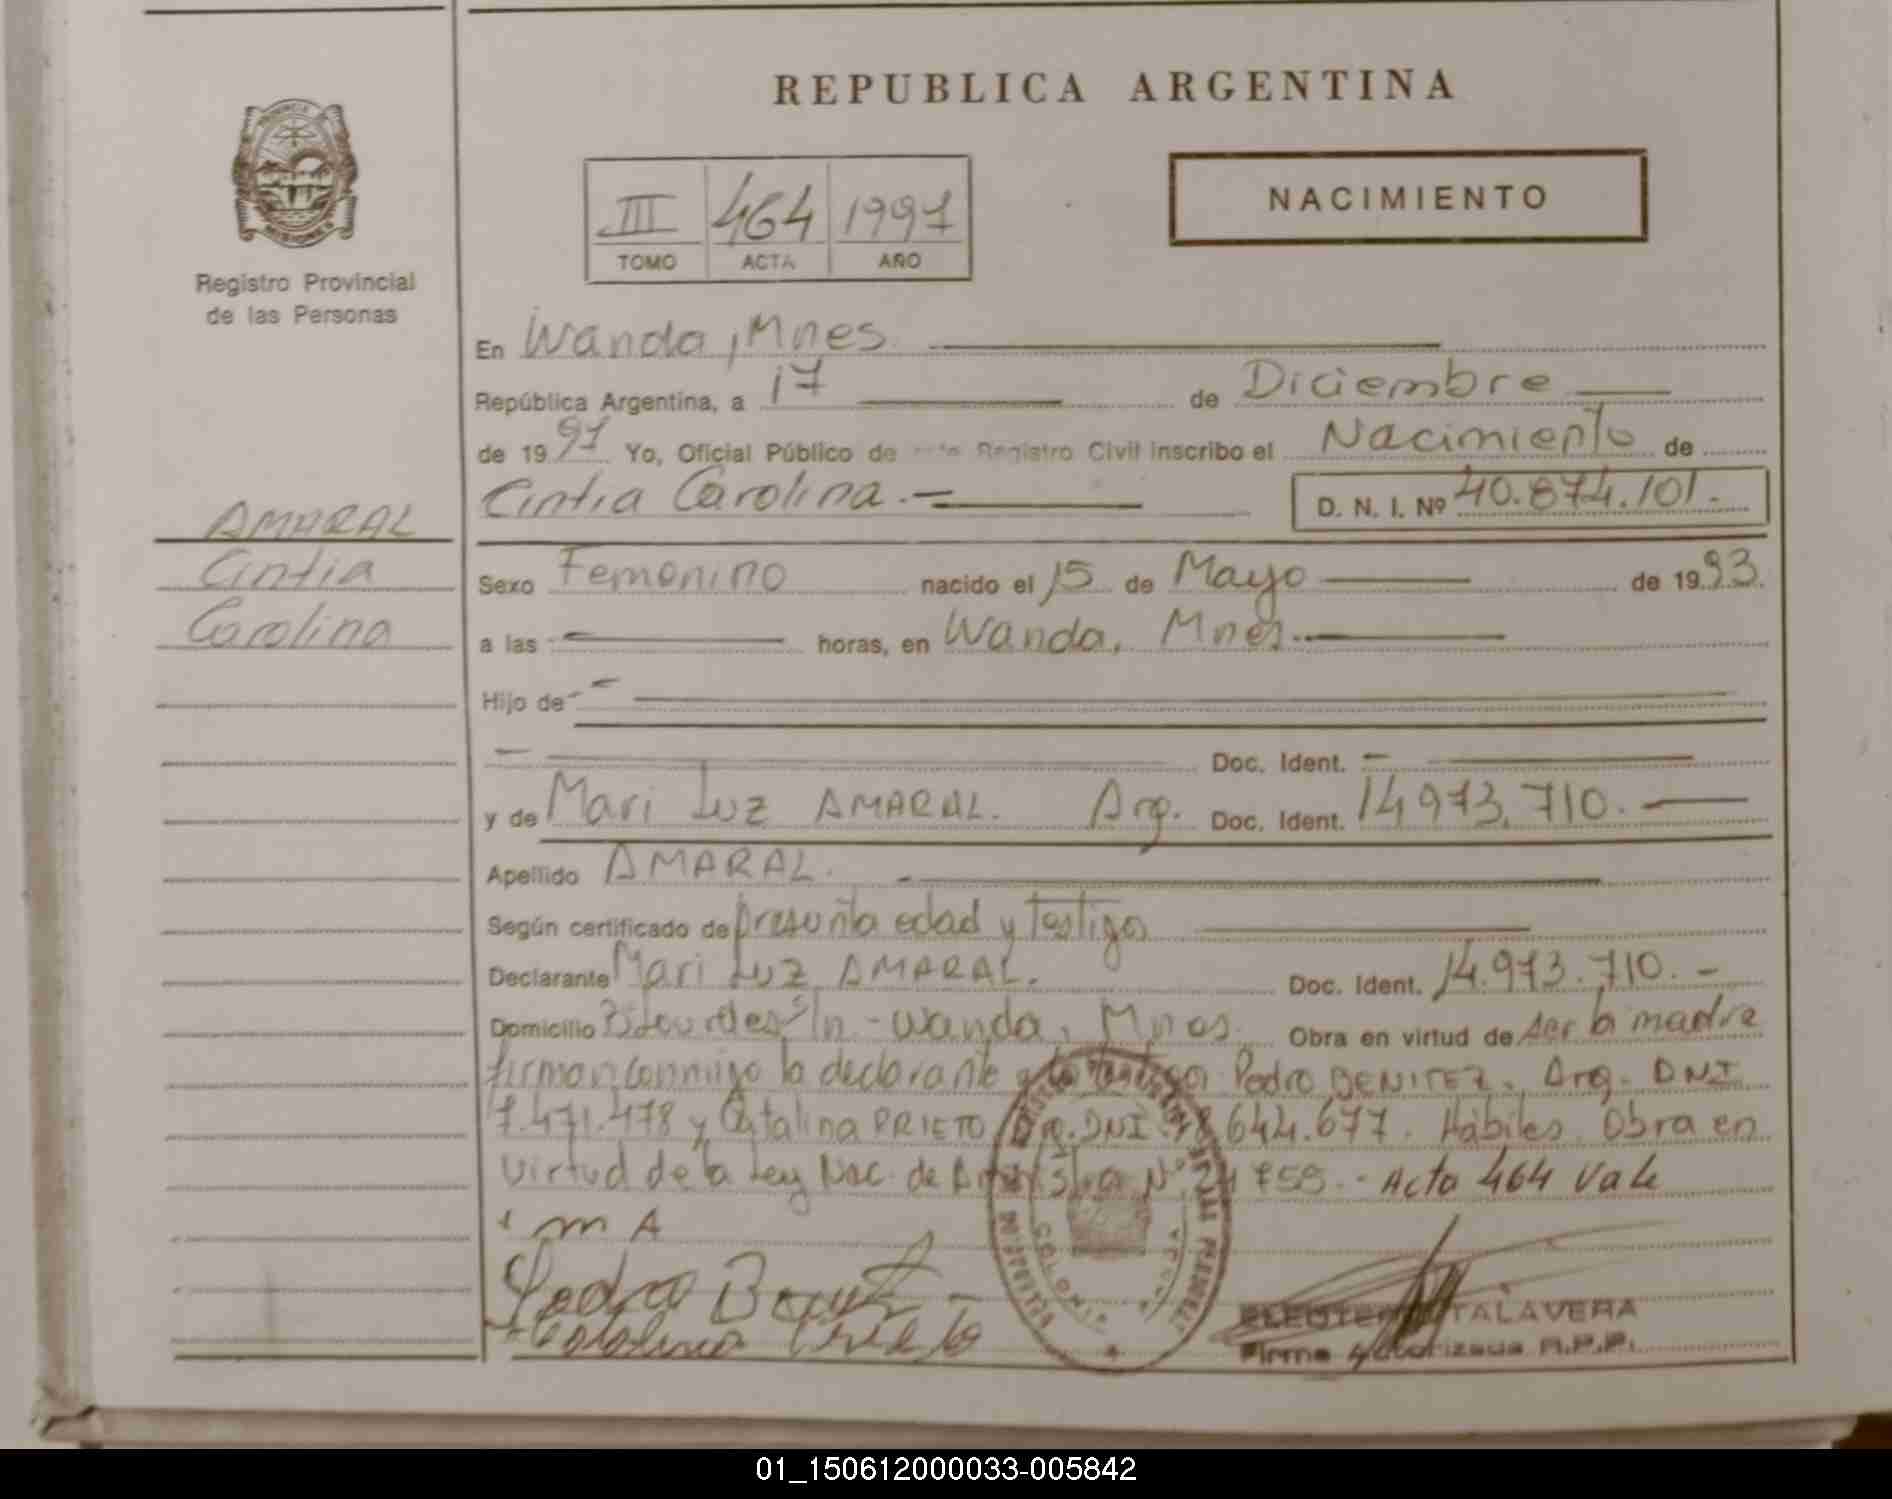 REPUBLICA ARGENTINA
NACIMIENTO
III 464 1997
TOMO ACTA AÑO
PROVINCIA
MISIONES
Registro Provincial
de las Personas
En Wanda, Mnes
República Argentina, a 17 de Diciembre
de 1997 Yo, Oficial Público de este Registro Civil inscribo el Nacimiento de
Cintia Carolina.- D. N. I. Nº 40.874.101.
AMARAL
Cintia
Carolina
Sexo Femenino nacido el 15 de Mayo de 1993.
a las horas, en Wanda, Mnes.
Hijo de
Doc. Ident.
y de Mari Luz AMARAL. Arg. Doc. Ident. 14973.710.
Apellido AMARAL.
Según certificado de presunta edad y testigo
Declarante Mari Luz AMARAL. Doc. Ident. 14.973.710.-
Domicilio Bº Lourdes S/n.-Wanda, Mnes. Obra en virtud de ser la madre
firman conmigo la declarante y Pedro BENITEZ. Arg. DNI
7.471.478 y Catalina PRIETO Arg. DNI 644.677. Hábiles. Obra en
virtud de la Ley Nac. de Amnistia Nº .- Acta 464 Vale
m A
Pedro Benitez
Catalina Prieto
COLONIA WANDA
TALAVERA
Firma Autorizada R.P.P.
01_150612000033-005842